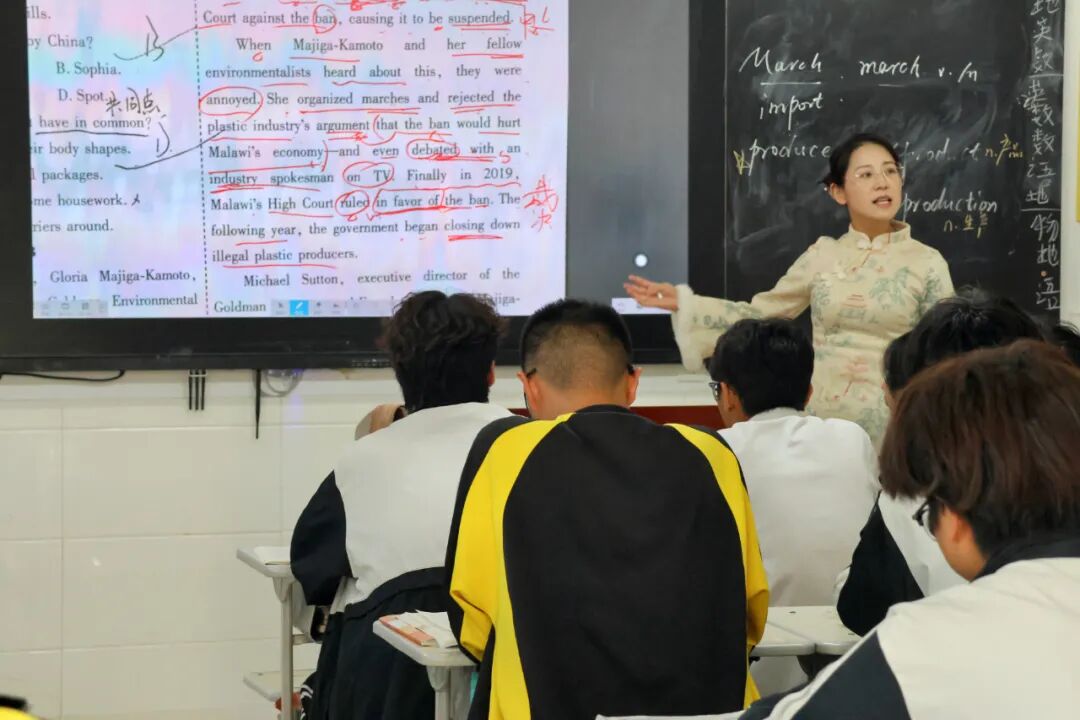 ills.
by China?
B. Sophia.
D. Spot.
共同点
have in common?
D
eir body shapes.
l packages.
me housework.
riers around.
Gloria Majiga-Kamoto,
Environmental
B
Court against the ban, causing it to be suspended.
When Majiga-Kamoto and her fellow
environmentalists heard about this, they were
annoyed. She organized marches and rejected the
plastic industry's argument that the ban would hurt
Malawi's economy—and even debated with an
industry spokesman on TV. Finally in 2019,
Malawi's High Court ruled in favor of the ban. The
following year, the government began closing down
illegal plastic producers.
裁决
Michael Sutton, executive director of the
Goldman
March march v. n
import
produce product n.产品
production
n.生产
地
英
数
数
物
地
语